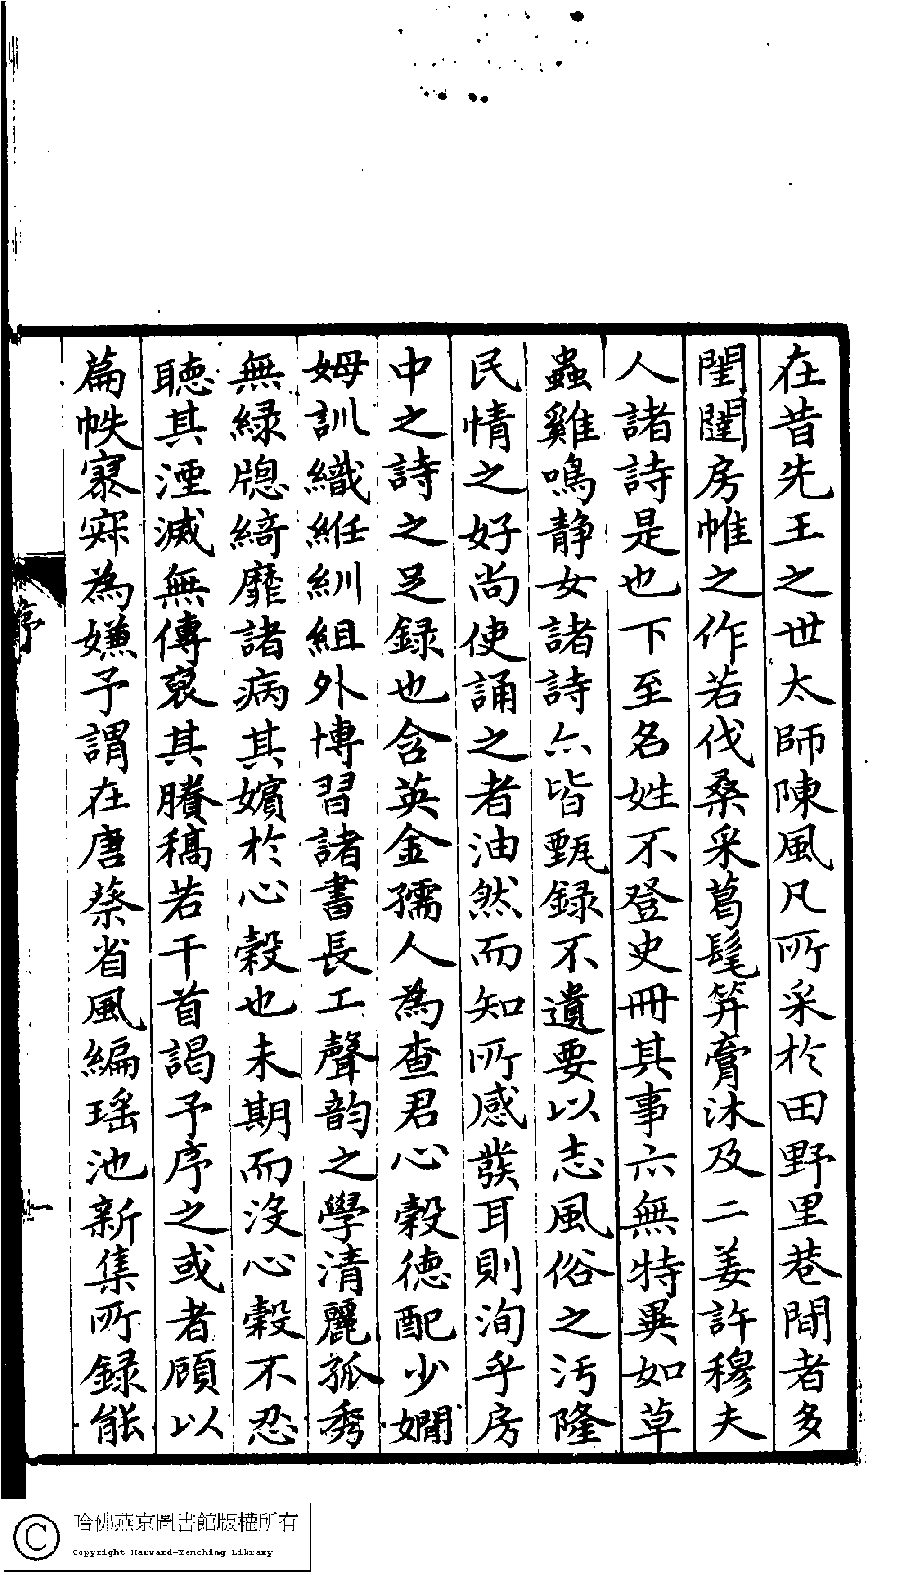 在昔先王之世太師陳風凡所采於田野里巷間者多
閨闥房帷之作若伐桑采葛髦笄膏沐及二姜許穆夫
人諸詩是也下至名姓不登史冊其事亦無特異如草
蟲雞鳴静女諸詩亦皆甄録不遺要以志風俗之汚隆
民情之好尚使誦之者油然而知所感發耳則洵乎房
中之詩之足録也含英金孺人為查君心穀德配少嫻
姆訓織紝紃組外博習諸書長工聲韵之學清麗孤秀
無緑牕綺靡諸病其嬪於心穀也未期而没心穀不忍
聽其湮滅無傳裒其賸稿若干首謁予序之或者顧以
篇帙寥寥為嫌予謂在唐蔡省風編瑶池新集所録能
序
一
哈佛燕京圖書館版權所有
Copyright Harvard-Yenching Library